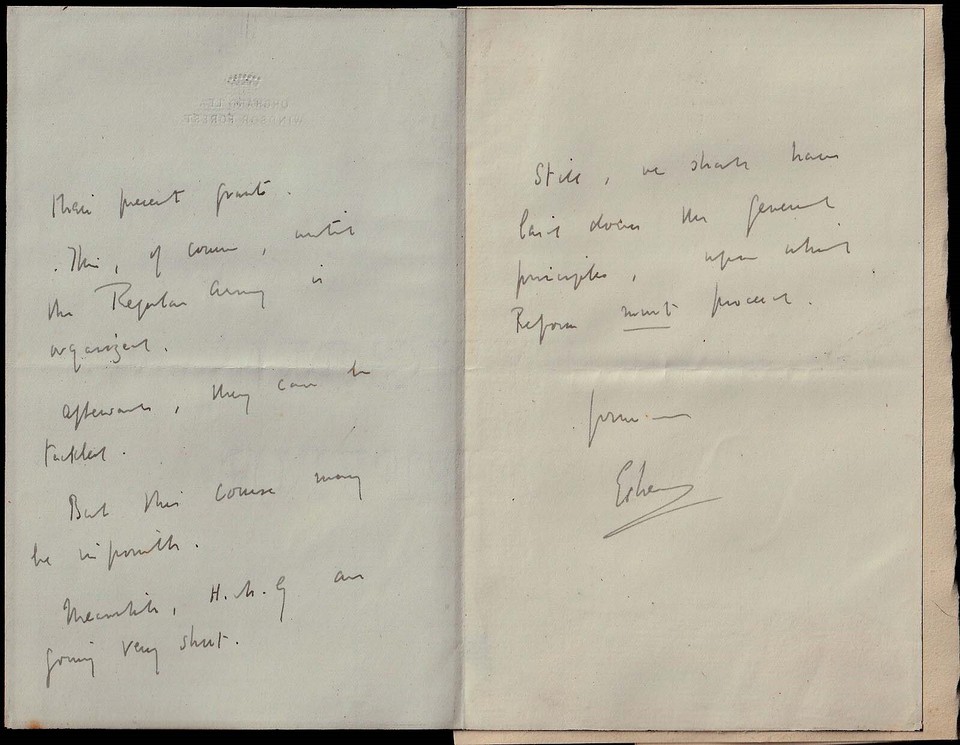 their present grants.
This, of course, until
the Regular Army is
organized.
Afterwards, they can be
tackled.
But this course may
be impossible.
Meanwhile, H.M.G are
going very short.
Still, we shall have
laid down the general
principles, upon which
Reform must proceed.
Esher